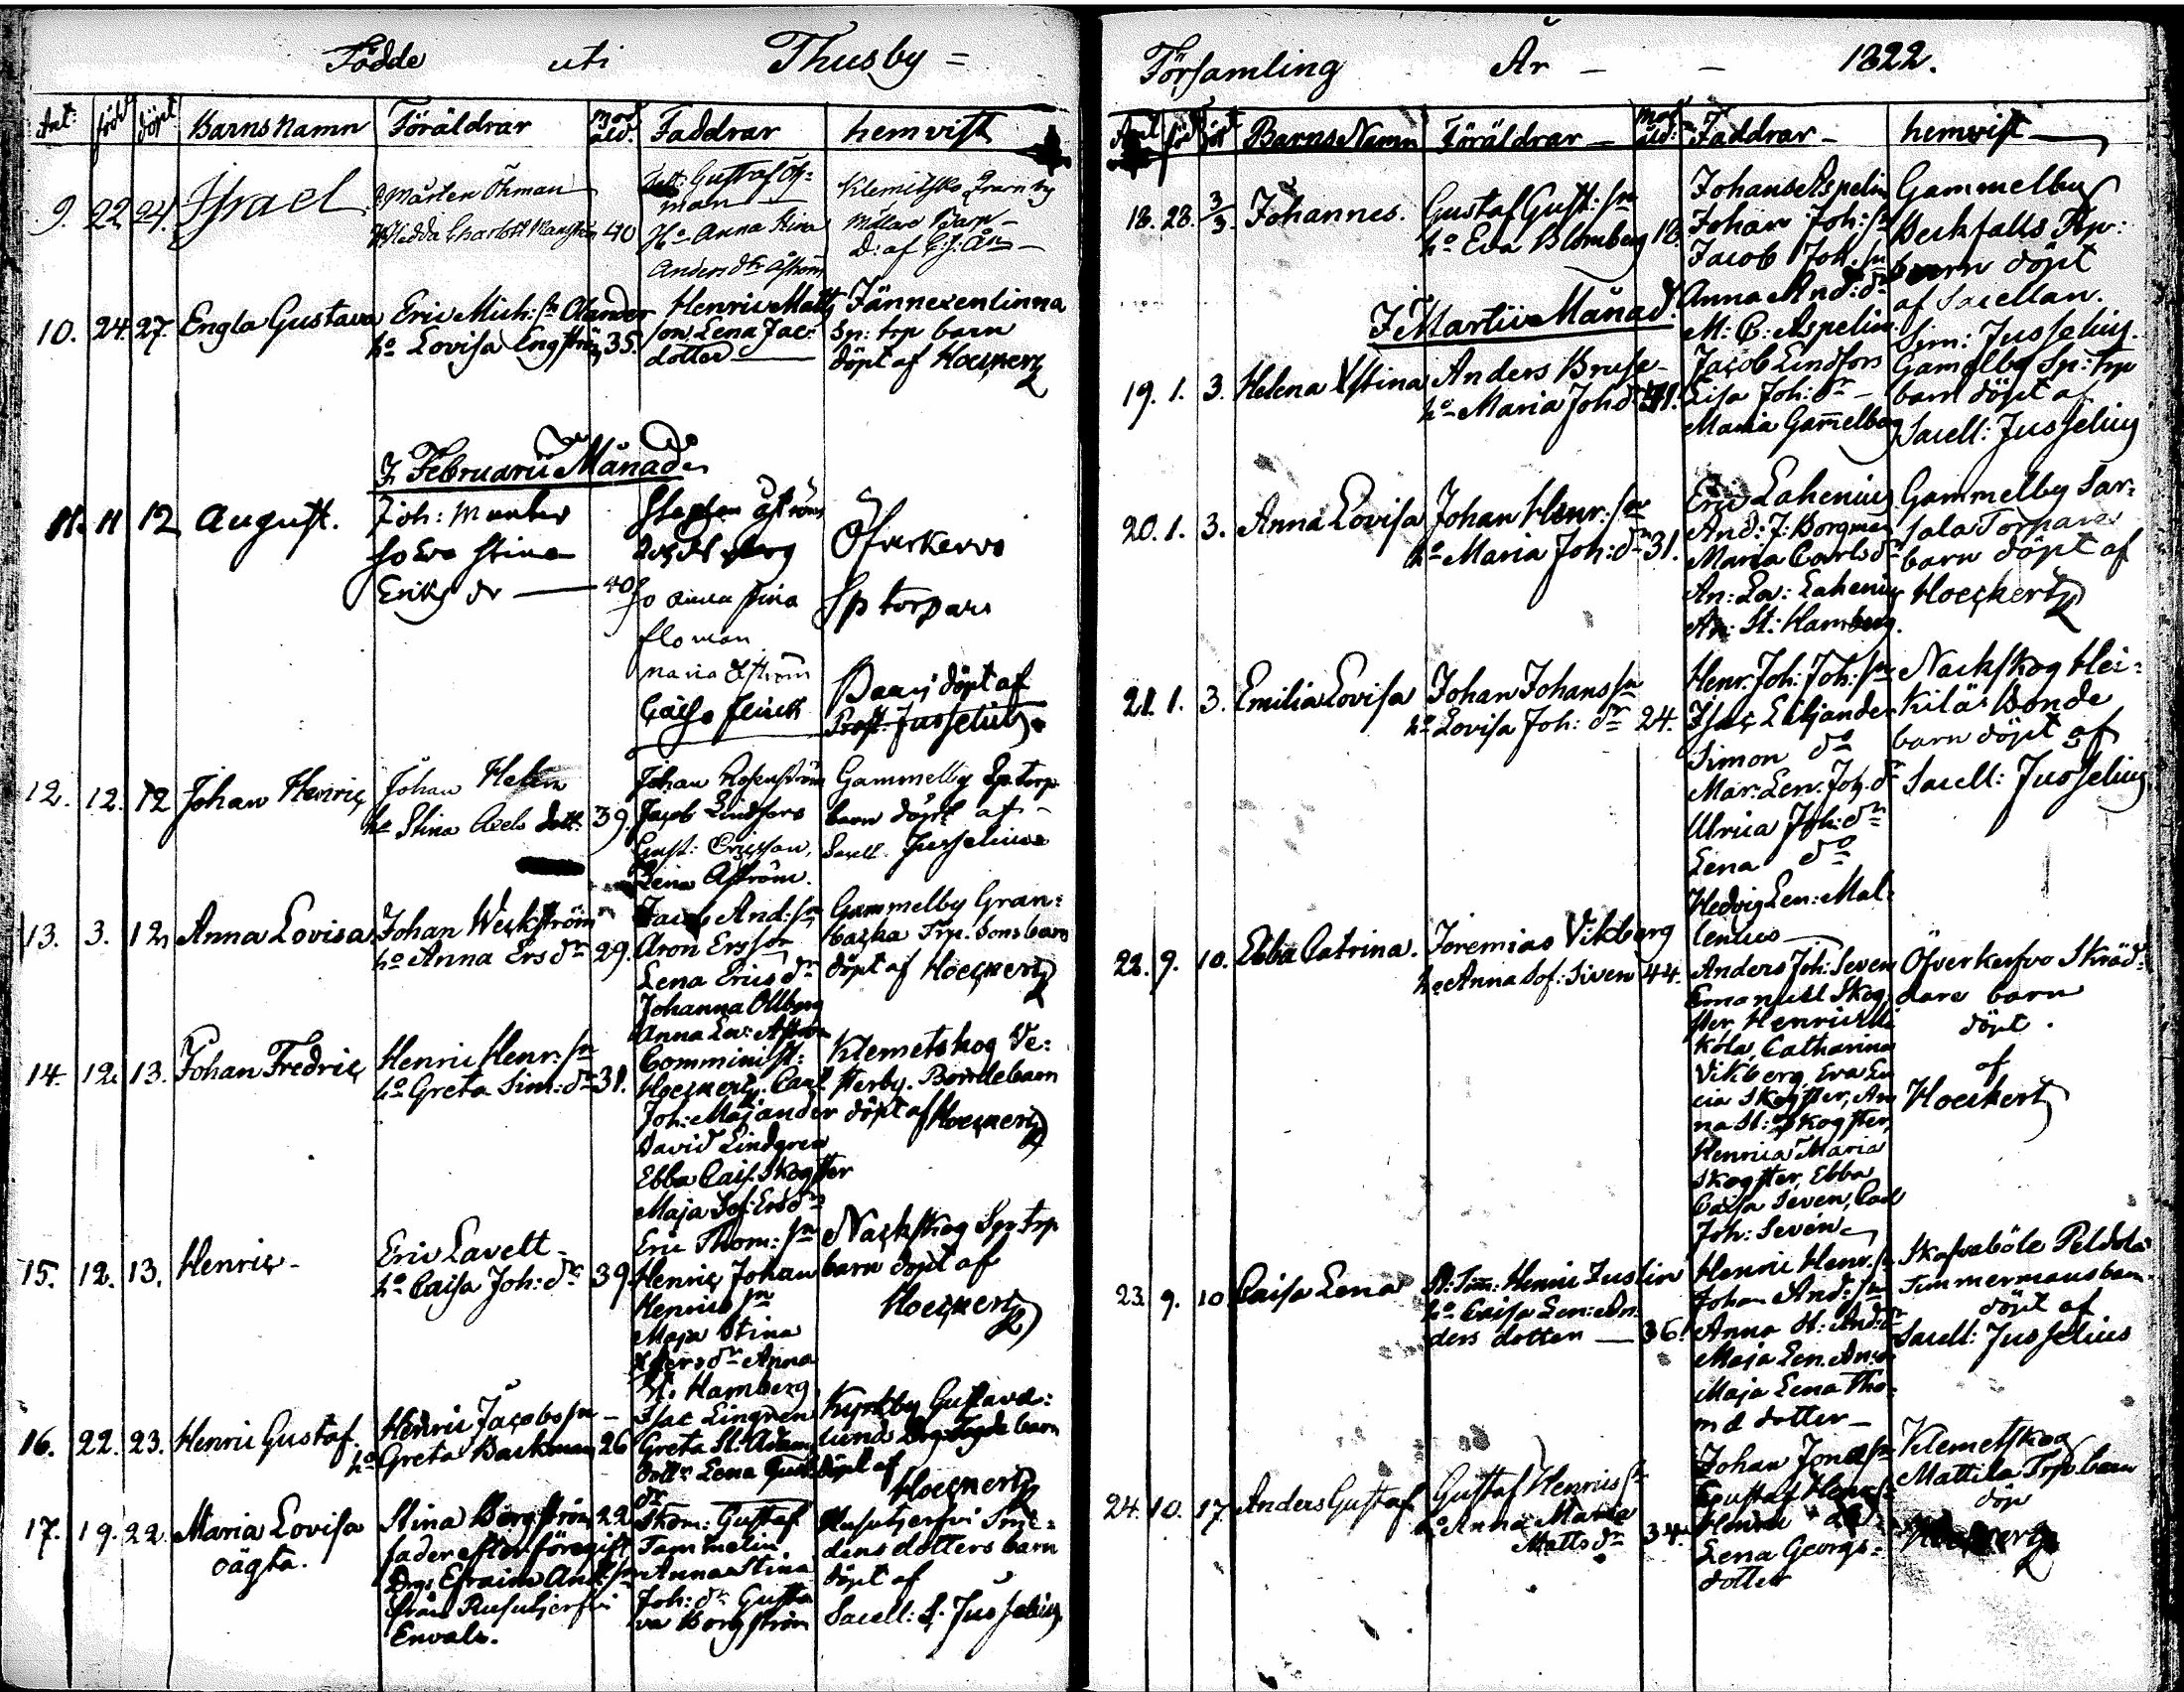 Födde uti Thusby =
Ant: född döpt Barns Namn Föräldrar Mod. åld. Faddrar hemvist
9. 22 24. Israel
Mårten Öhman
Hedda Charlott 40
Gustaf Öh=
man
Ho Anna Stina
Anders dr Åström
Klemitsko Qvarnby
Möllare Barn
D: af C:J: Ån
10. 24. 27. Engla Gustava
Eric Mich: sn Olander
ho Lovisa Engström 35.
Henric Matts
son Lena Jac:
dotter
Jännexenlinna
Sp: trp barn
döpt af Hoeckertz
I Februarii Månad
11. 11 12 August.
Joh: Munter
ho Eva Stina
Eriks dr 40
Stephan Åström
ho Anna Stina
Floman
Maria Åström
Cajsa Flinck
Öfverkervo
Sp torpare
Barn döpt af
Prost. Jusselius.
12. 12. 12 Johan Henric
Johan Helin
ho Stina Carls dott: 39.
Johan Rosenström
Jacob Lindfors
Gust: Ericsson,
Lena Åström.
Gammelby Sp. torp
barn döpt af
Sacell. Jusselius
13. 3. 12. Anna Lovisa
Johan Weckström
ho Anna Ers dr 29.
Jacob And: sn
Aron Ersson
Lena Erics dr
Johanna Ollberg
Anna Lov: Åström
Gammelby Gran=
backa Trp. Sons barn
döpt af Hoeckertz
14. 12. 13. Johan Fredric
Henric Henr: sn
ho Greta Sim: dr 31.
Comminist:
Hoeckertz. Carl
Joh: Majander
David Lindgren
Ebba Cajs. Skogster
Maja Sof: Ersdr
Klemetskog Ve:
sterby. Bondebarn
döpt af Hoeckertz
15. 12. 13. Henric
Eric Lavett
ho Caisa Joh: dr 39.
Eric Thom: sn
Henric Johan
Henrics sn
Maja Stina
Anna
St. Hamberg
Nackskog Sp: trp
barn döpt af
Hoeckertz
16. 22. 23. Henric Gustaf
Henric Jacobs sn
ho Greta Backman 26
Isac Lingren
Greta St: Adam
dottr Lena Gust
dr
Kyrkby Gustavs:
lunds barn
döpt af
Hoeckertz
17. 19. 22. Maria Lovisa
oägta.
Stina Borgström 22
fader efter föregift
Drg: Efraim And: sn
från Rusutjerfvi
Envals.
Skom: Gustaf
Tammelin
Anna Stina
Joh: dr Gusta
va Borgström
Rusutjerfvi Sme=
dens dotters barn
döpt af
Sacell: S. Jusselius
Församling År 1822.
Ant född döpt Barns Namn Föräldrar Mod åld: Faddrar hemvist
18. 28. 3/3. Johannes.
Gustaf Gust: sn
ho Eva Blomberg 18.
Johans Aspelin
Johan Joh: sn
Jacob Joh: sn
Anna And: dr
M: C: Aspelin
Gammelby
Beckfalls Trp:
barn döpt
af Sacellan.
Sim: Jusselius.
I Martii Månad.
19. 1. 3. Helena Xstina
Anders Bruse
ho Maria Joh dr
Jacob Lindfors
Lisa Joh: dr
Maria Gam̄elberg
Gamelby Sp: trp
barn döpt af
Sacell: Jusselius
20. 1. 3. Anna Lovisa
Johan Henr: sn
ho Maria Joh: dr 31.
Eric Lahenius
And: J: Borgman
Maria Carls dr
An: Lov: Lahenius
An: St: Hamberg.
Gammelby Sar=
sala Torpare
barn döpt af
Hoeckertz
21. 1. 3. Emilia Lovisa
Johan Johans sn
ho Lovisa Joh: dr 24.
Henr. Joh: Joh: sn
Isac Liljander
Simon do
Mar: Len: Joh. dr
Ulrica Joh: dr
Lena do
Hedvig Len: Mal=
lenius
Nackskog Hei=
kilä Bonde
barn döpt af
Sacell: Jusselius
22. 9. 10. Ebba Catrina.
Jeremias Vikberg
ho Anna Sof: Siven 44.
Anders Joh: Seven
Emanuel Skog
ster, Henric Mi
kola, Catharina
Vikberg, Eva Lu
cia Skogster, An
na St: Skogster,
Henrica Maria
Skogster, Ebba
Caisa Seven, Carl
Joh: Sevén
Öfverkerfvo Skräd=
dare barn
döpt.
af
Hoeckertz
23. 9. 10 Caisa Lena
St: Tim̄: Henric Juslin
ho Caisa Len: An:
ders dotter 36.
Henric Henr. sn
Johan And: sn
Anna St: And: dr
Maja Len. An: dr
Maja Lena Tho=
mæ dotter
Skafvaböle Peldola
Timmermans barn
döpt af
Sacell: Jusselius
24. 10. 17. Anders Gustaf
Gustaf Henrics sn
ho Anna Maria
Matts dr 34.
Johan Jonæ sn
Gustaf Henr: sn
Henric
Lena Georgs=
dotter
Klemetskog
Mattila Trp barn
döp
Hoeckertz